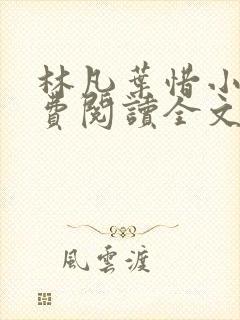 林凡葉惜小
費閱讀全文
風雲渡